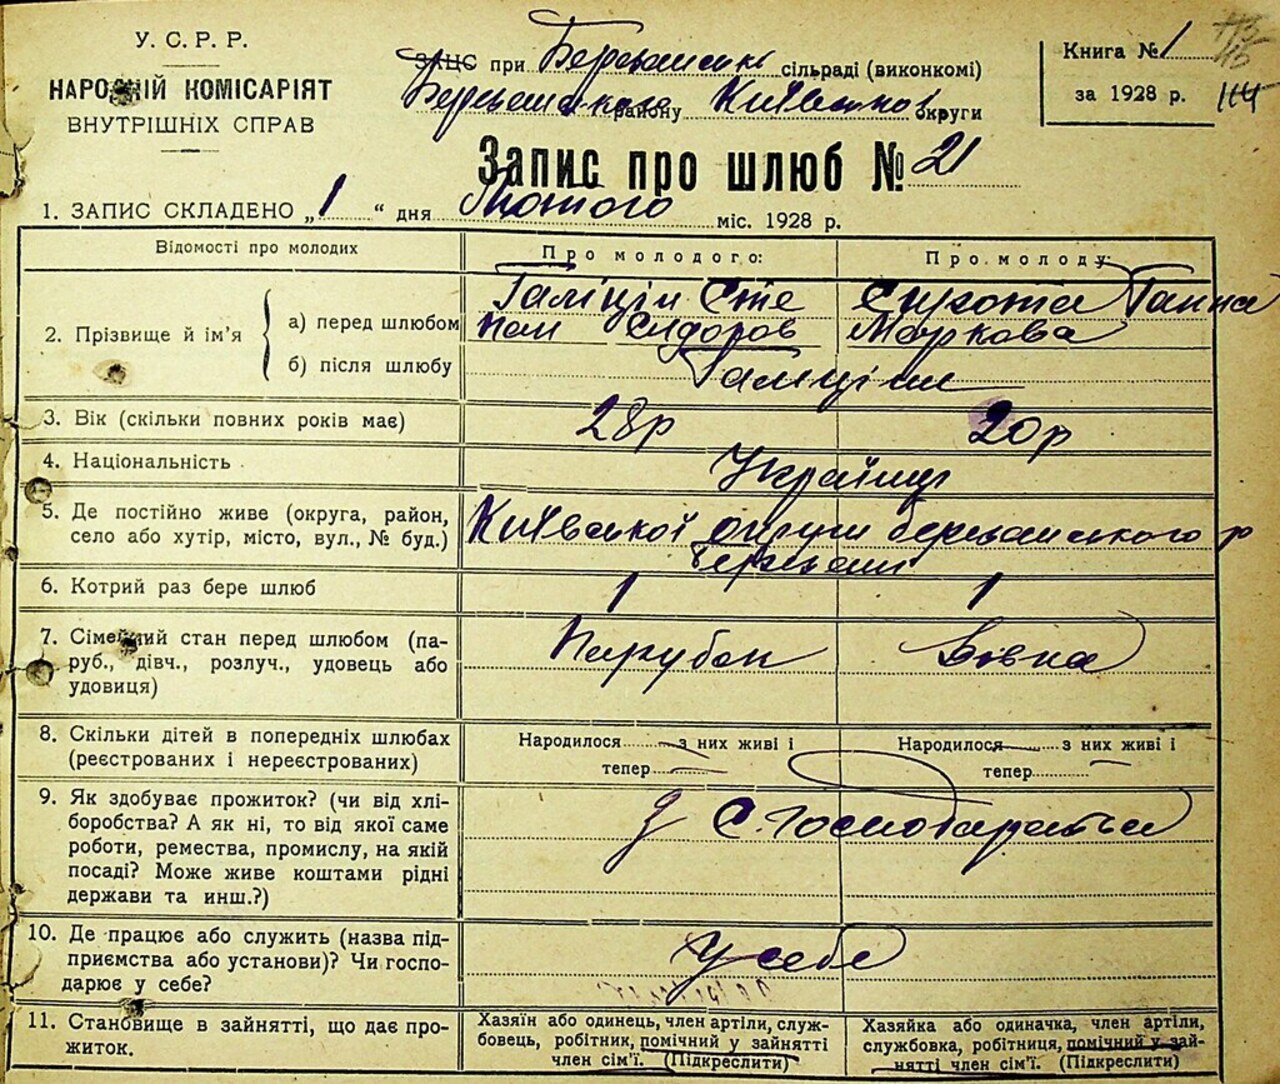 У. С. Р. Р.
НАРОДНІЙ КОМІСАРІЯТ
ВНУТРІШНІХ СПРАВ
ЗАГС при сільраді (виконкомі)
району округи
Книга № 1
за 1928 р.
114
Запис про шлюб № 21
1. ЗАПИС СКЛАДЕНО „1“ дня Лютого міс. 1928 р.
Відомості про молодих
Про молодого:
Про молоду:
2. Прізвище й ім’я
а) перед шлюбом
б) після шлюбу
Галіцін Сте
пан Сидоров
Сирота Ганна
Маркова
Галіціни
3. Вік (скільки повних років має)
28р
20р
4. Національність
Українці
5. Де постійно живе (округа, район,
село або хутір, місто, вул., № буд.)
Київської округи Березанського р
Березані
6. Котрий раз бере шлюб
1
1
7. Сімейний стан перед шлюбом (па-
руб., дівч., розлуч., удовець або
удовиця)
Парубок
Дівка
8. Скільки дітей в попередніх шлюбах
(реєстрованих і нереєстрованих)
Народилося — з них живі і
тепер —
Народилося — з них живі і
тепер
9. Як здобуває прожиток? (чи від хлі-
боробства? А як ні, то від якої саме
роботи, ремества, промислу, на якій
посаді? Може живе коштами рідні
держави та инш.?)
С. Господарства
10. Де працює або служить (назва під-
приємства або установи)? Чи госпо-
дарює у себе?
У себе
11. Становище в зайнятті, що дає про-
житок.
Хазяїн або одинець, член артілі, служ-
бовець, робітник, помічний у зайнятті
член сім’ї. (Підкреслити)
Хазяйка або одиначка, член артілі,
службовка, робітниця, помічний у зай-
нятті член сім’ї. (Підкреслити)